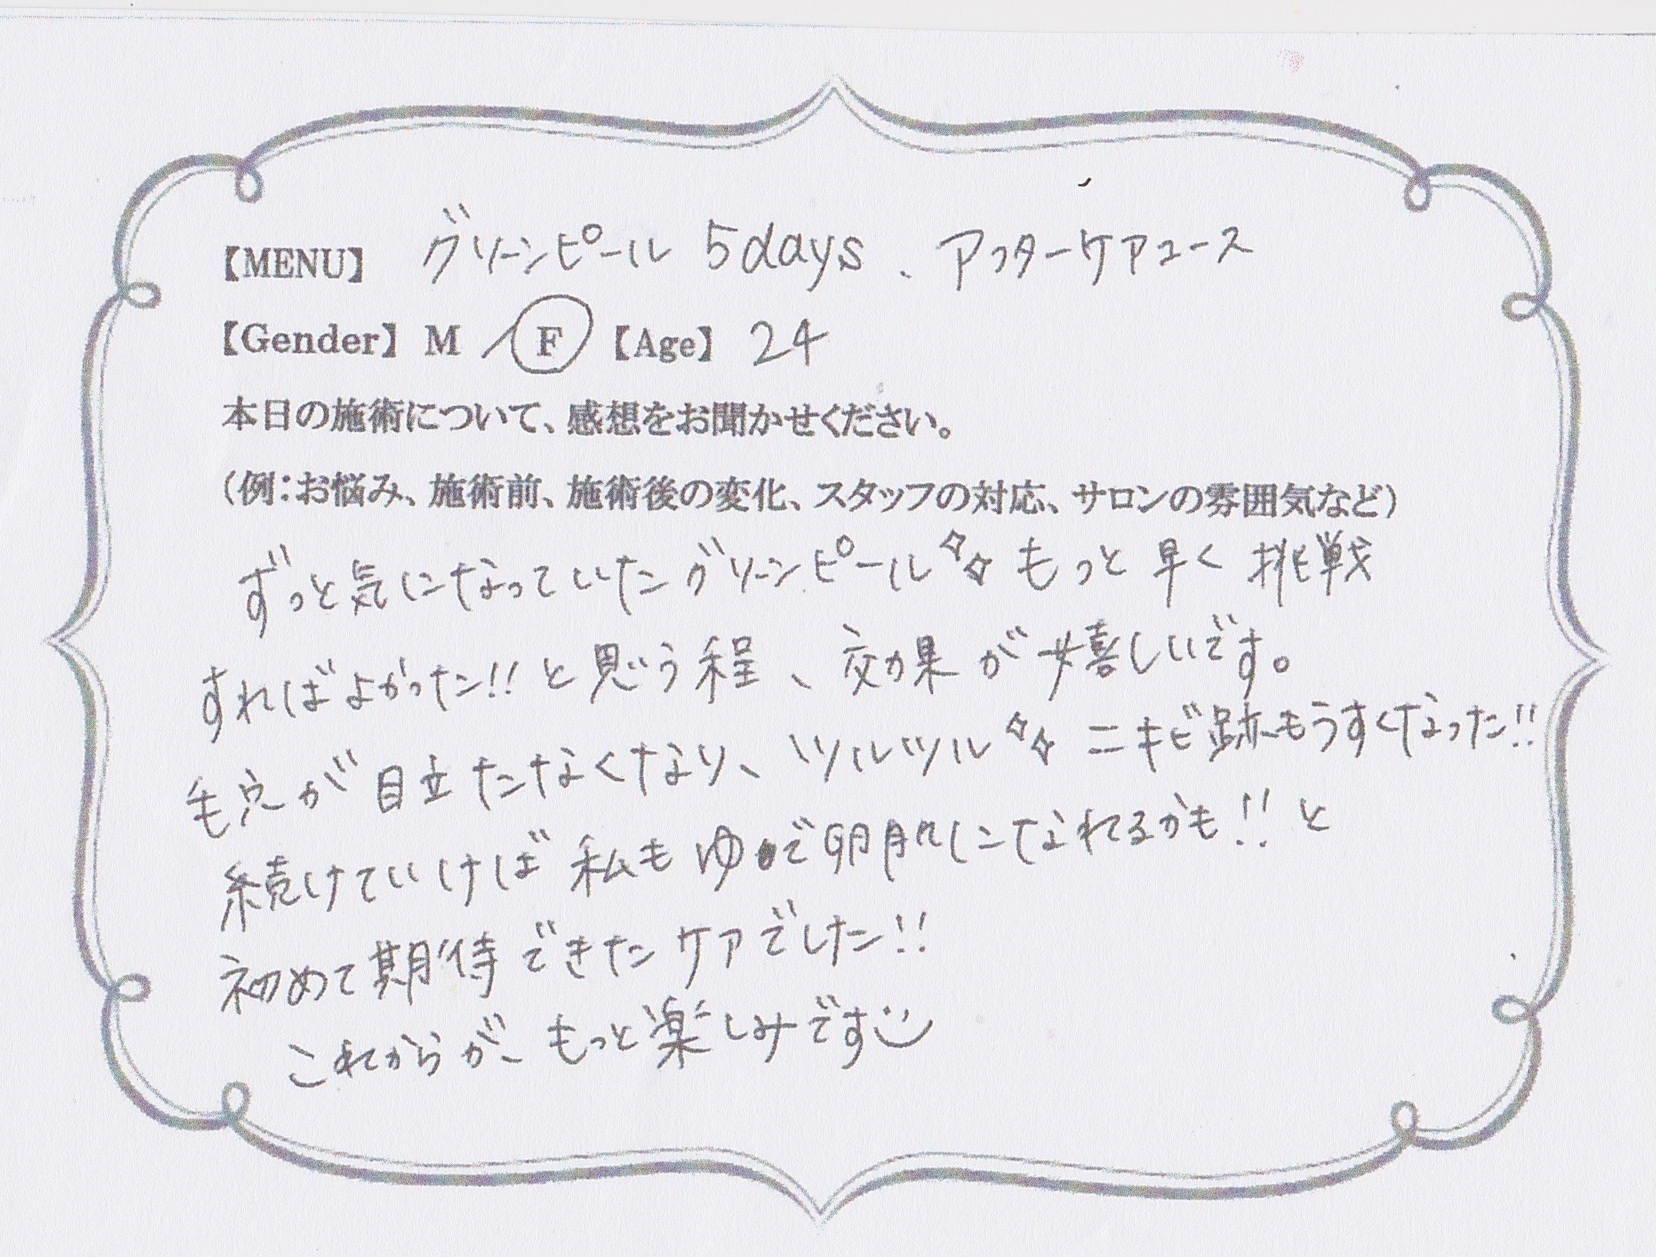 【MENU】 グリーンピール 5days、アフターケアコース
【Gender】 M / F 【Age】 24
本日の施術について、感想をお聞かせください。
(例：お悩み、施術前、施術後の変化、スタッフの対応、サロンの雰囲気など)
ずっと気になっていたグリーンピール✧✧ もっと早く挑戦
すればよかった!! と思う程、効果が嬉しいです。
毛穴が目立たなくなり、ツルツル✧✧ ニキビ跡もうすくなった!!
続けていけば私もゆで卵肌になれるかも!! と
初めて期待できたケアでした!!
これからが、もっと楽しみです